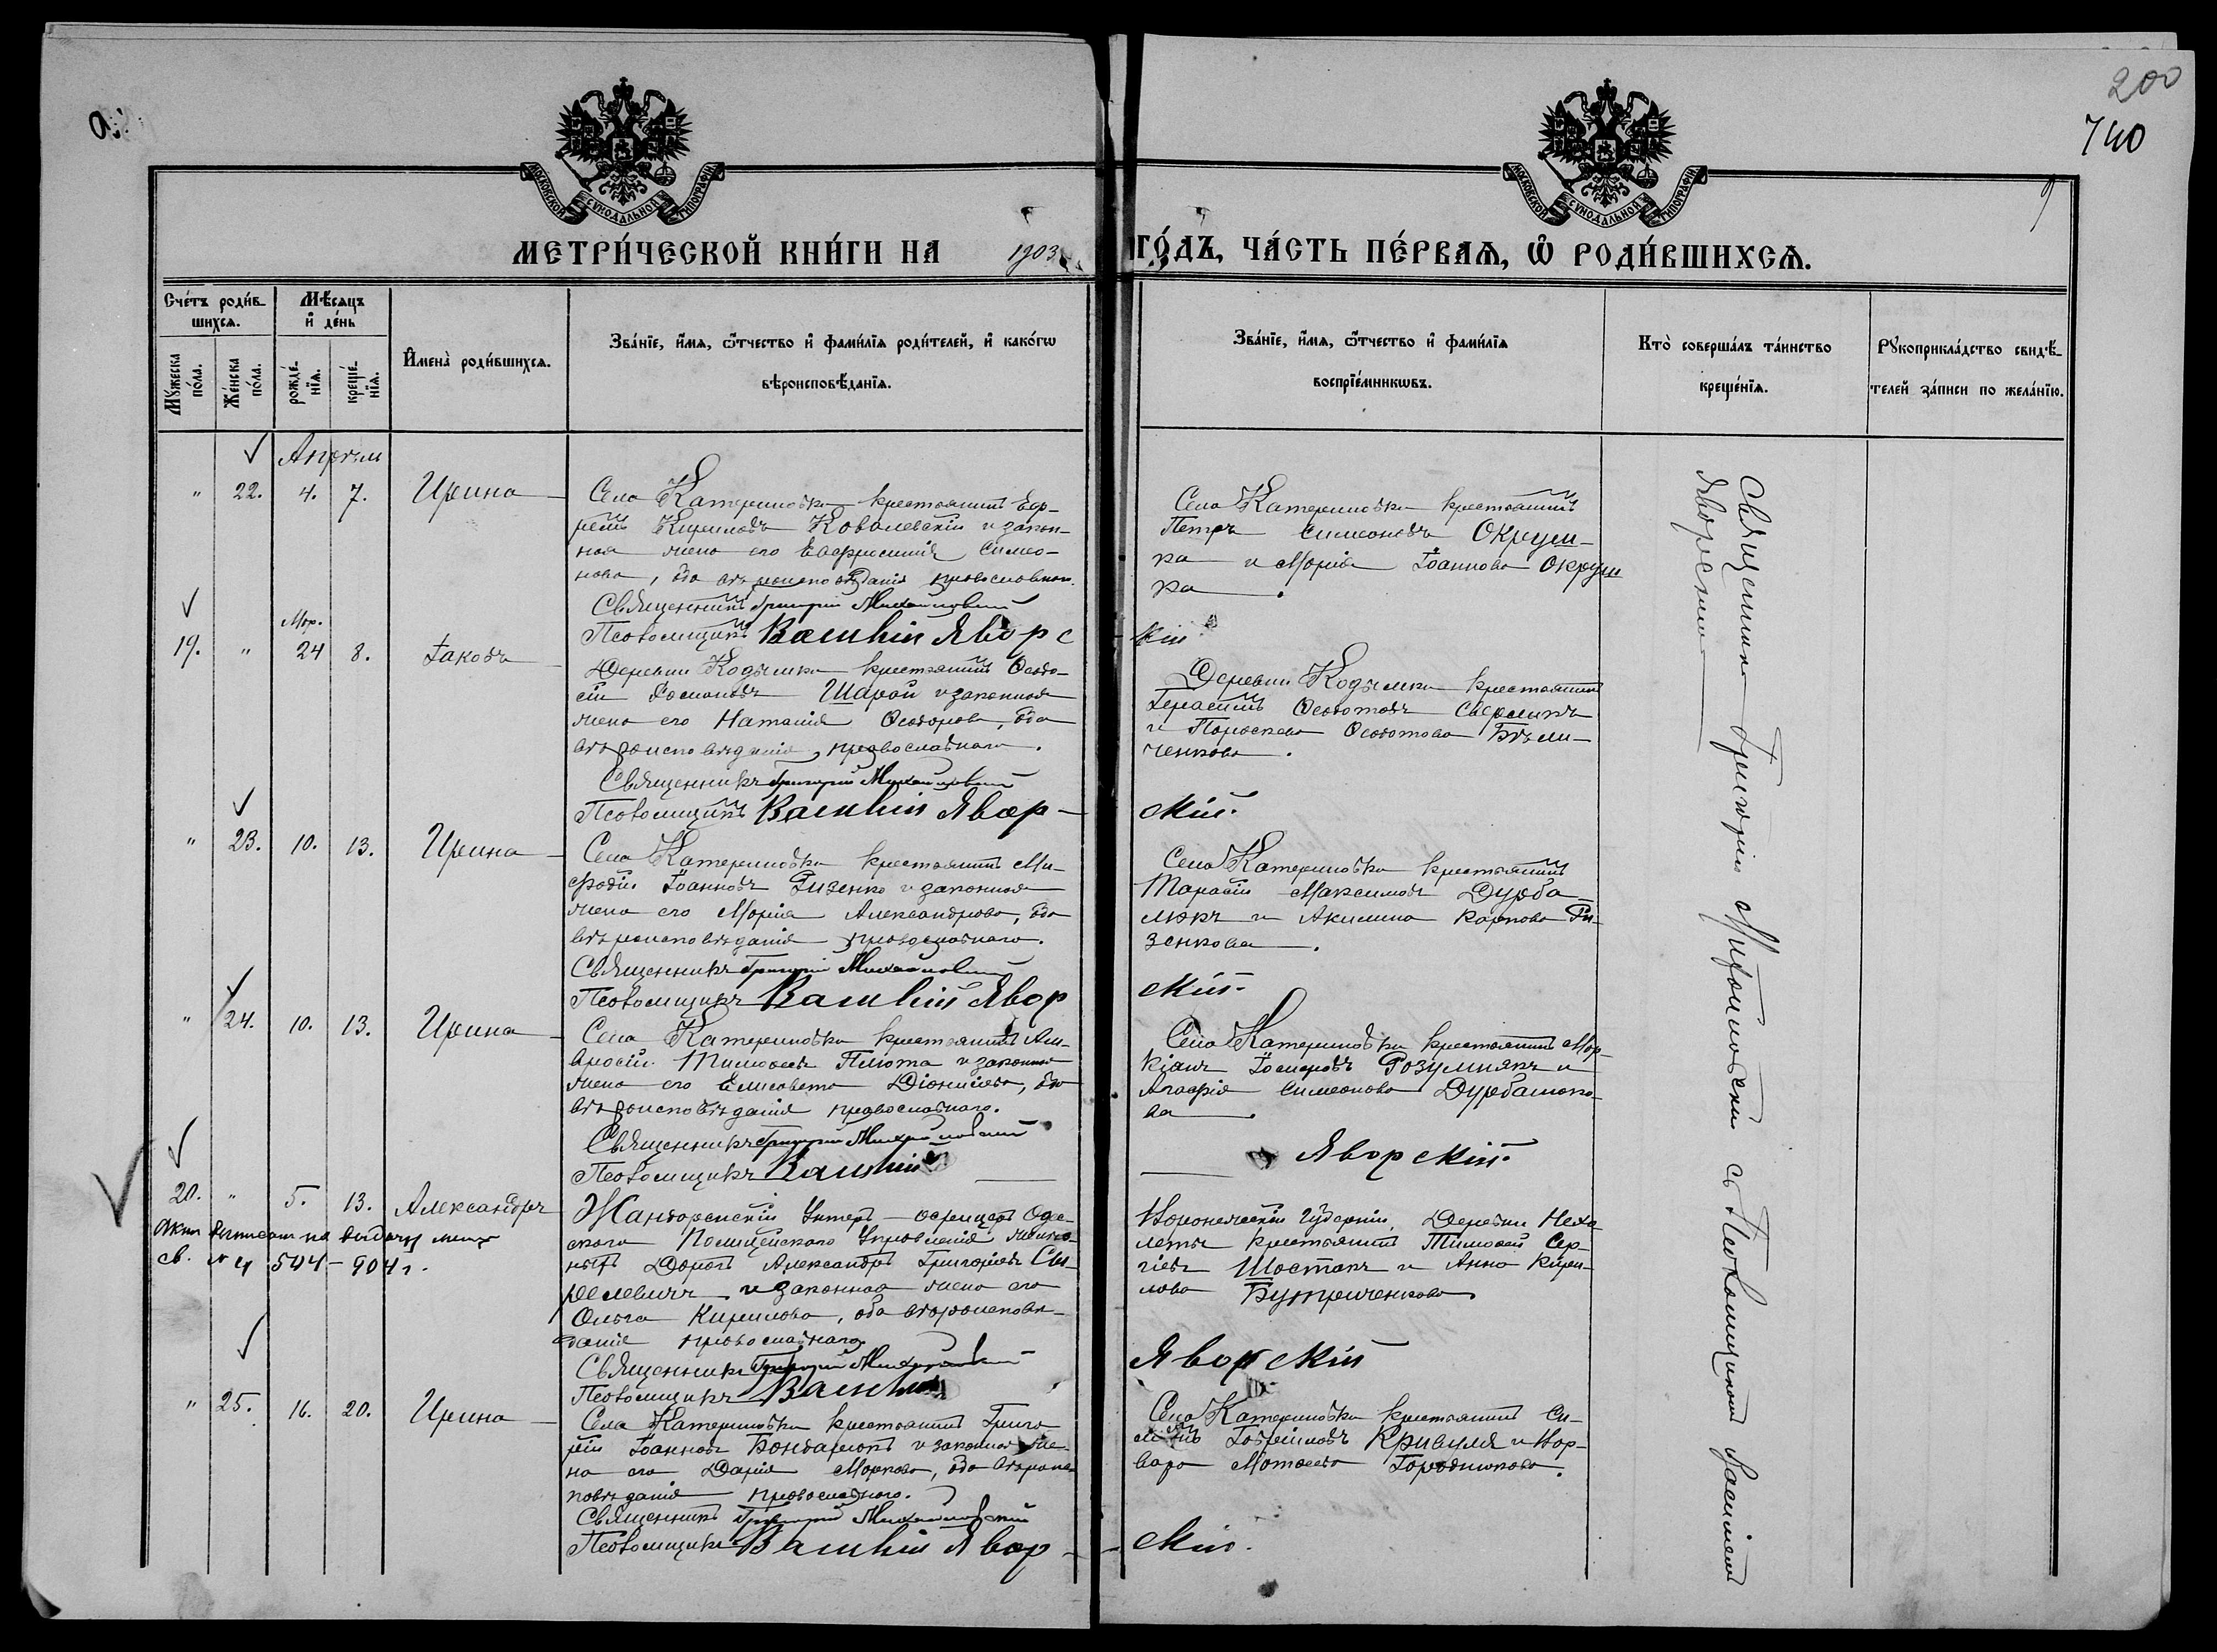 200
740
9
МОСКОВСКОЙ СУНОДАЛЬНОЙ ТИПОГРАФІИ
МОСКОВСКОЙ СУНОДАЛЬНОЙ ТИПОГРАФІИ
МЕТРИ́ЧЕСКОЙ КНИ́ГИ НА 1903 ГО́ДЪ, ЧА́СТЬ ПЕ́РВАѦ, Ѡ҆ РОДИ́ВШИХСѦ.
Сче́тъ роди́в-
шихсѧ.
Мꙋ́жеска
по́ла.
Же́нска
по́ла.
Мѣ́сяцъ
и҆ де́нь
рожде́-
нїѧ.
креще́-
нїѧ.
И҆мена̀ роди́вшихсѧ.
Зва́нїе, и҆́мѧ, ѻ҆́тчество и҆ фами́лїѧ роди́телей, и҆ како́гѡ
вѣроисповѣ́данїѧ.
Зва́нїе, и҆́мѧ, ѻ҆́тчество и҆ фами́лїѧ
воспрїе́мникѡвъ.
Кто̀ соверша́лъ та́инство
креще́нїѧ.
Рꙋкоприкла́дство свидѣ́-
телей за́писи по жела́нїю.
Апрѣль
" 22. 4. 7. Ирина
Села Катериновки крестьянинъ Еф-
ремъ Кириловъ Ковалевскій и закон-
ная жена его Евфросинія Симео-
нова, оба вѣроисповѣданія православнаго.
Священникъ Григорій
Псаломщикъ Василій Яворс
кій
Села Катериновки крестьянинъ
Петръ Симеоновъ Окруш-
ка и Марія Іоаннова Окруш
ка.
19. " Мар. 24 8. Іаковъ
Деревни Кодымки крестьянинъ Ѳеодо-
сій Шарай и законная
жена его Наталія Ѳеодорова, оба
вѣроисповѣданія православнаго.
Священникъ Григорій
Псаломщикъ Василій Явор-
скій.
Деревни Кодымки крестьянинъ
Герасимъ
и Параскева
ченкова.
" 23. 10. 13. Ирина
Села Катериновки крестьянинъ Ме-
фодій Іоанновъ Гизенко и законная
жена его Марія Александрова, оба
вѣроисповѣданія православнаго.
Священникъ Григорій
Псаломщикъ Василій Явор
скій.
Села Катериновки крестьянинъ
Тарасій Максимовъ Дурба-
люкъ и Акилина Карпова Ги-
зенкова.
" 24. 10. 13. Ирина
Села Катериновки крестьянинъ Ам-
вросій Тимоѳеевъ Плюта и законная
жена его Елисавета Діонисіева, оба
вѣроисповѣданія православнаго.
Священникъ Григорій
Псаломщикъ Василій
Яворскій.
Села Катериновки крестьянинъ Мар-
кіанъ Іосифовъ Розумнякъ и
Агафія Симеонова Дурбалюко-
ва.
20. " 5. 13. Александръ
св. № 544 - 904 г.
Жандармскій Унтеръ-офицеръ Одес-
скаго Полицейскаго Управленія желѣз-
ныхъ Дорогъ Александръ Григоріевъ
и законная жена его
Ольга Кирилова, оба вѣроисповѣ-
данія православнаго.
Священникъ Григорій
Псаломщикъ Василій
Яворскій
Воронежской Губерніи, Деревни
крестьянинъ Тимоѳей Сер-
гіевъ Шостакъ и Анна Кири-
лова
" 25. 16. 20. Ирина
Села Катериновки крестьянинъ Григо-
рій Іоанновъ Бондарюкъ и законная же-
на его Дарія Маркова, оба вѣроис-
повѣданія православнаго.
Священникъ Григорій
Псаломщикъ Василій Явор-
скій.
Села Катериновки крестьянинъ Си-
Гавріиловъ Кривуля и Вар-
вара Матѳеева Городнюкова.
Священникъ Григорій съ Псаломщикомъ Василіемъ
Яворскимъ